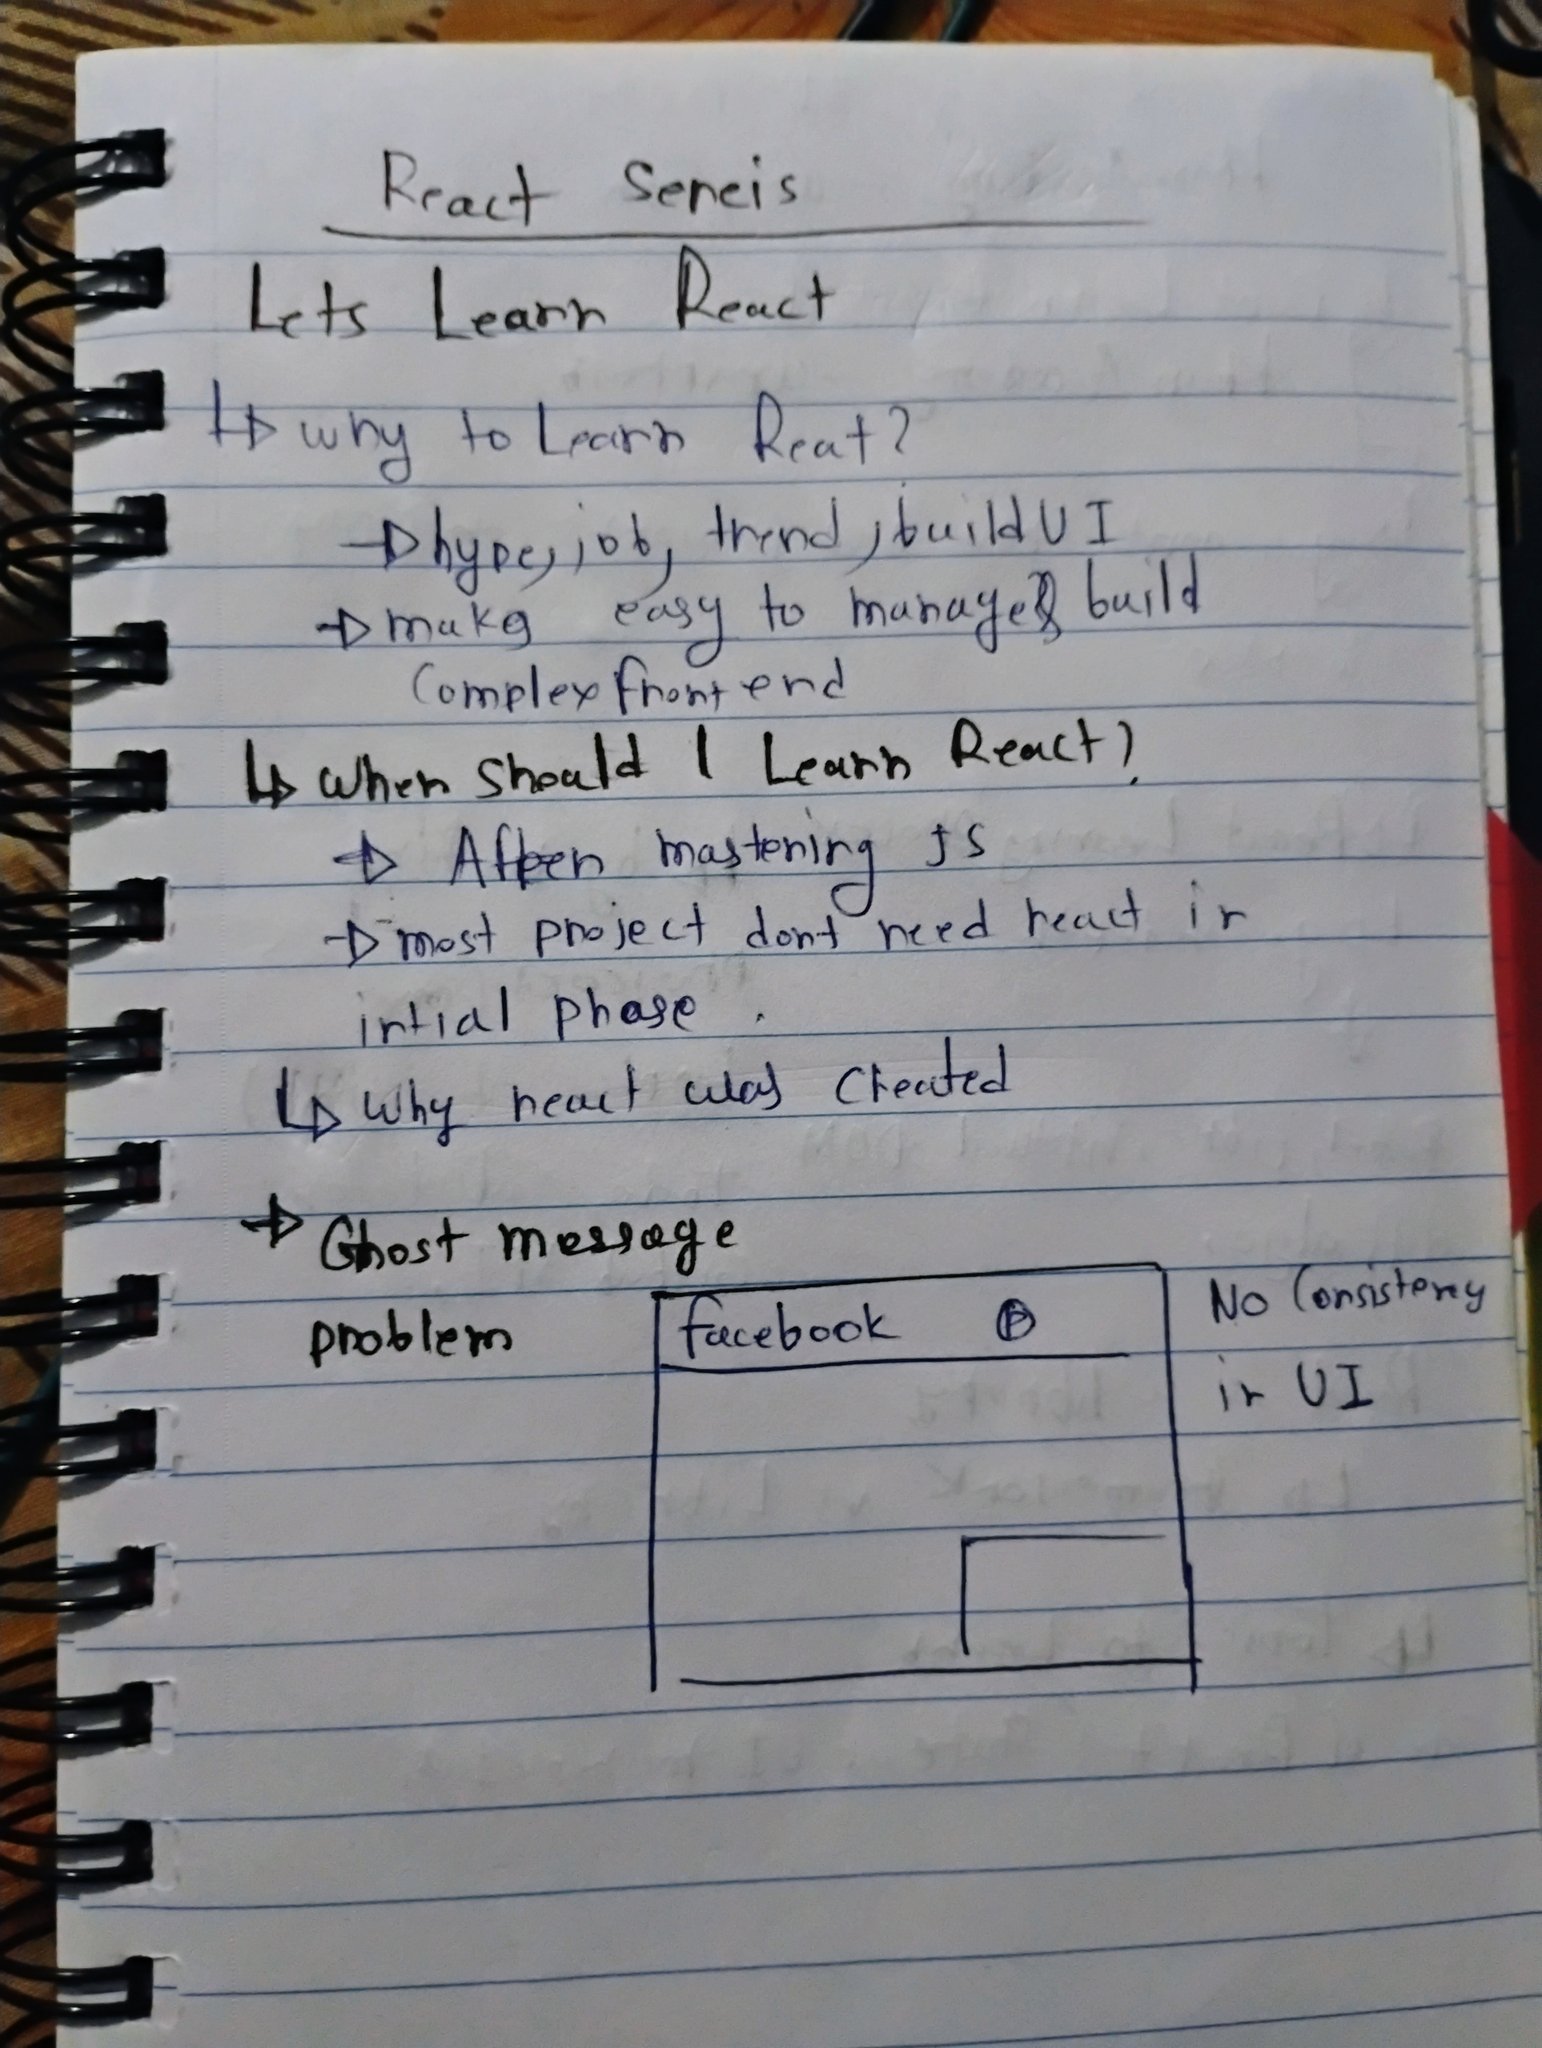 React Sereis
Lets Learn React
↳ why to Learn Reat?
→ hype, job, trend, build UI
→ make easy to manage & build
Complex front end
↳ When should I Learn React?
→ After mastering JS
→ most project dont need react in
intial phase.
↳ Why react was Created
→ Ghost message
problem
facebook
No Consistency
in UI